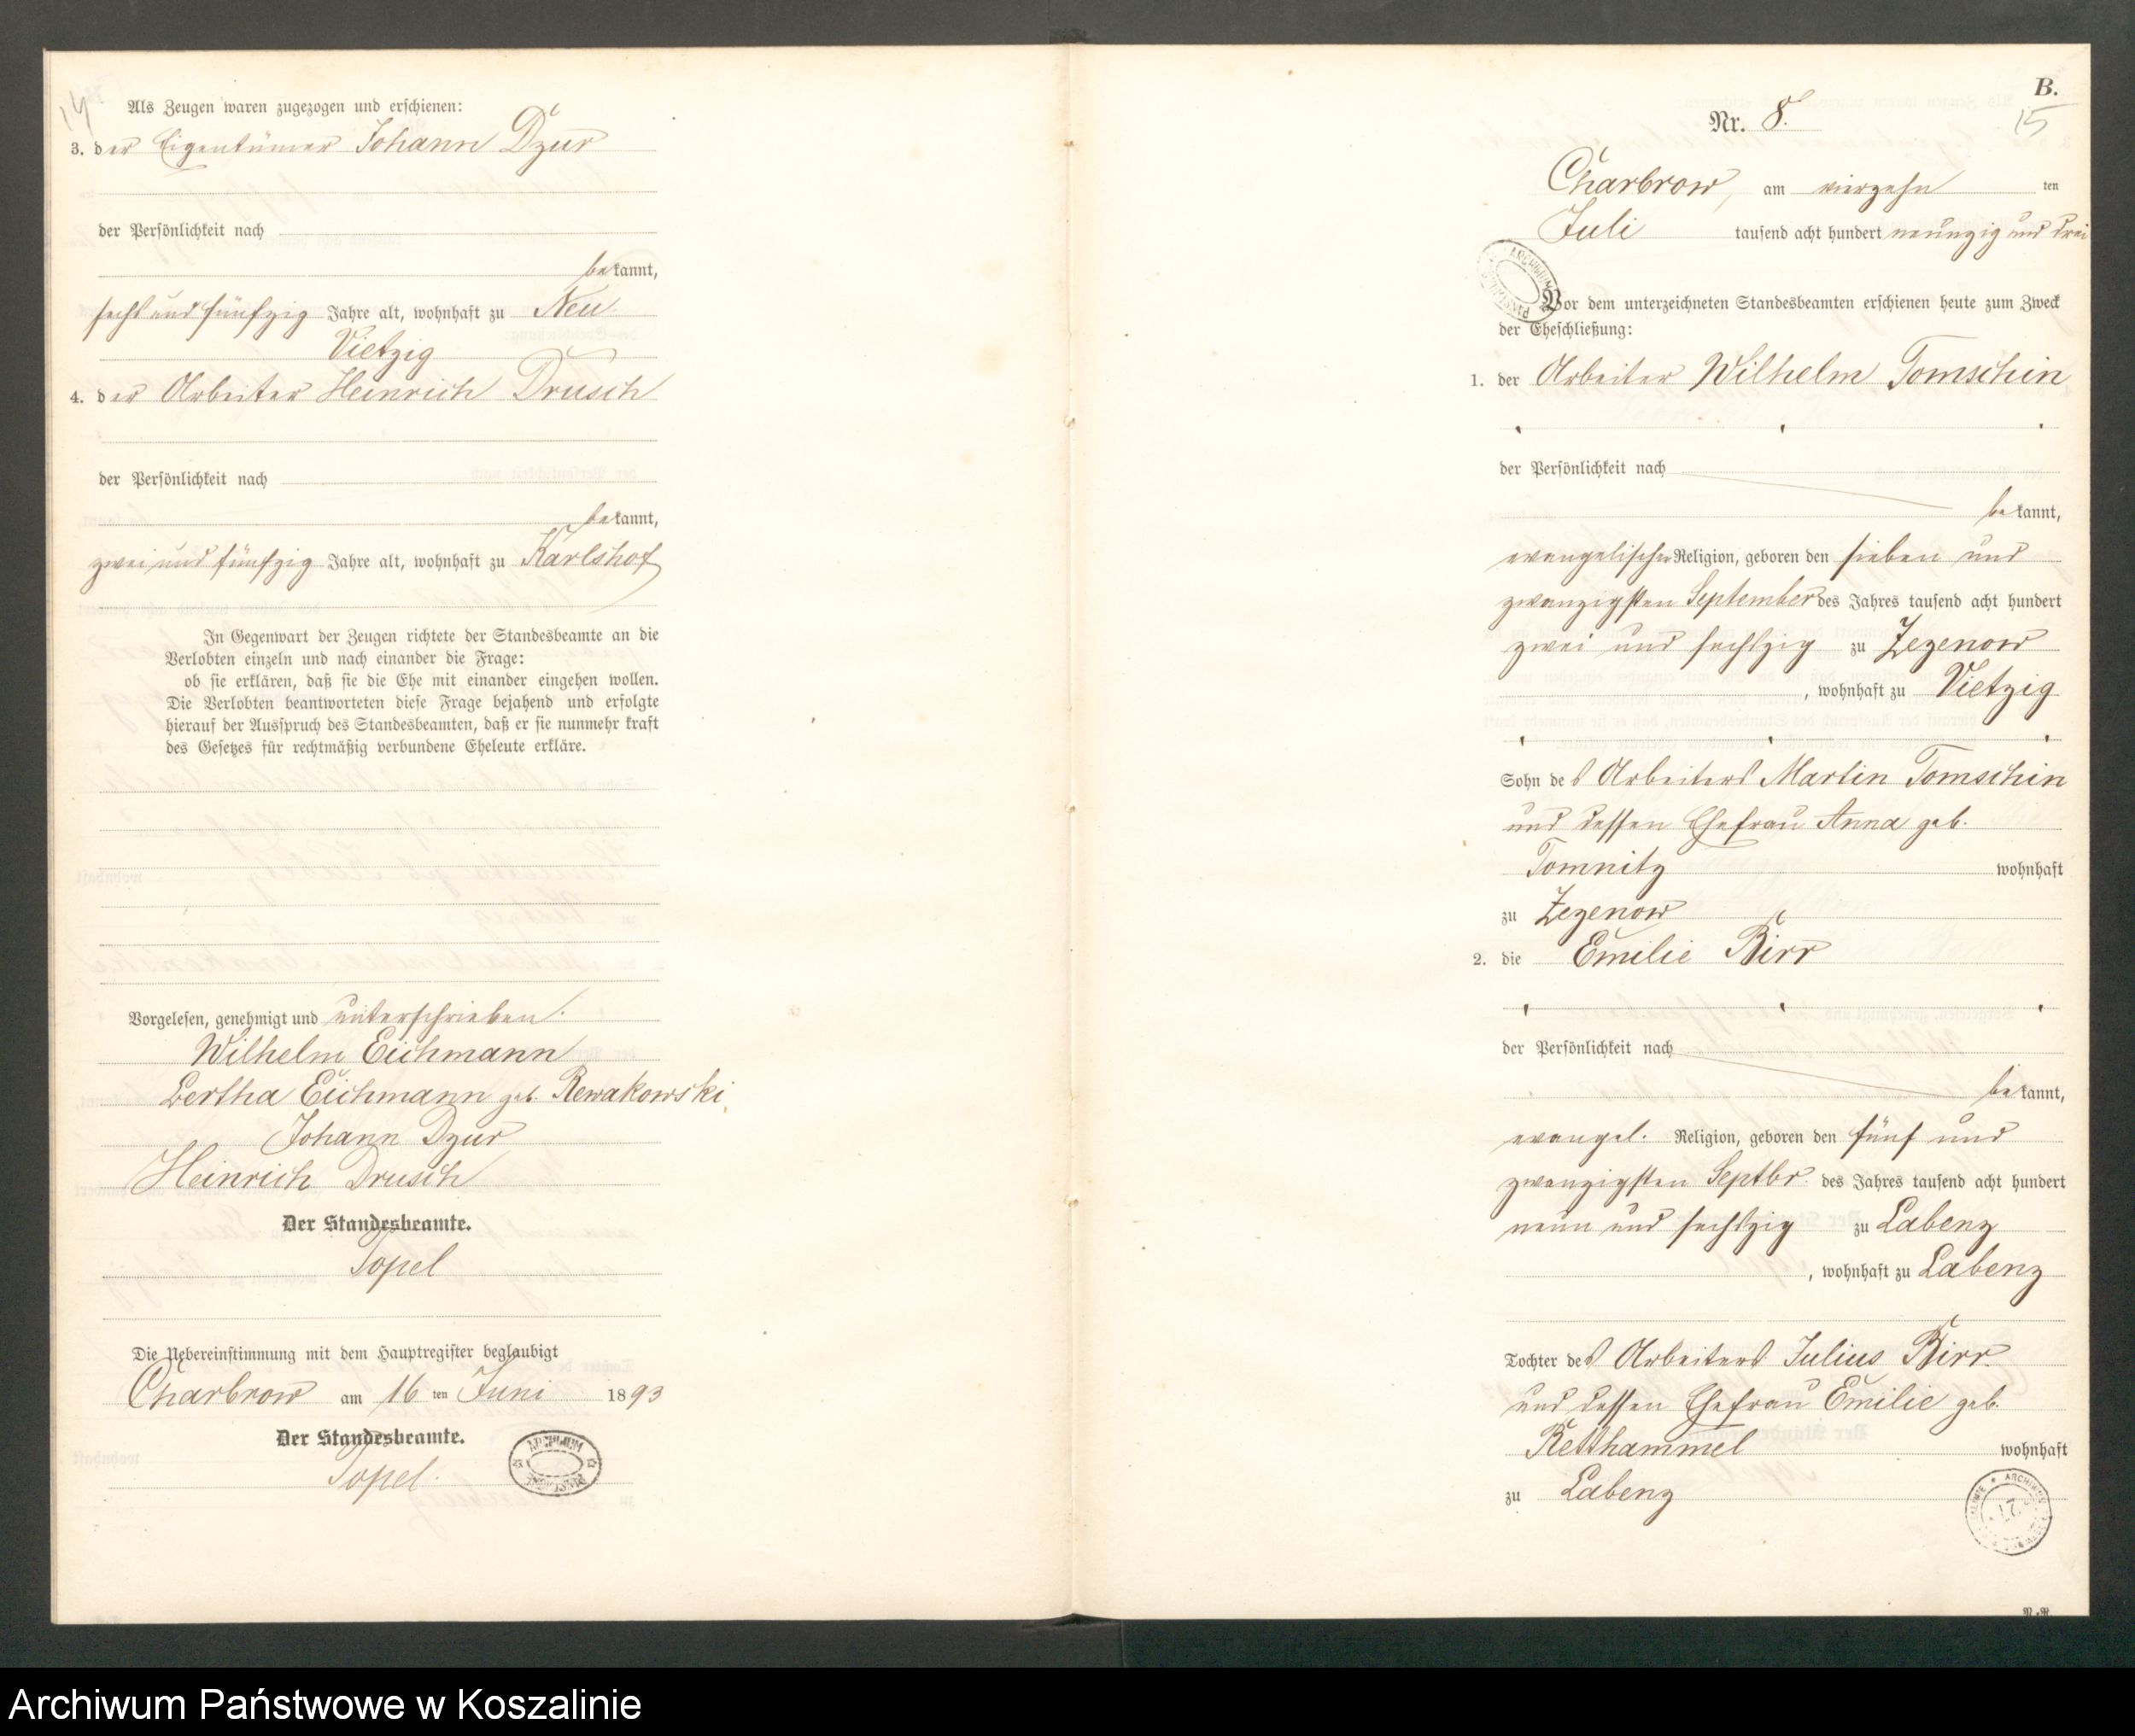 14
Als Zeugen waren zugezogen und erschienen:
3. der Eigentümer Johann Dzur
der Persönlichkeit nach
bekannt,
sechs und fünfzig Jahre alt, wohnhaft zu Neu
Vietzig
4. der Arbeiter Heinrich Drusch
der Persönlichkeit nach
bekannt,
zwei und fünfzig Jahre alt, wohnhaft zu Karlshof
In Gegenwart der Zeugen richtete der Standesbeamte an die
Verlobten einzeln und nach einander die Frage:
ob sie erklären, daß sie die Ehe mit einander eingehen wollen.
Die Verlobten beantworteten diese Frage bejahend und erfolgte
hierauf der Ausspruch des Standesbeamten, daß er sie nunmehr kraft
des Gesetzes für rechtmäßig verbundene Eheleute erkläre.
Vorgelesen, genehmigt und unterschrieben.
Wilhelm Eichmann
Bertha Eichmann geb. Rewakowski
Johann Dzur
Heinrich Drusch
Der Standesbeamte.
Topel
Die Uebereinstimmung mit dem Hauptregister beglaubigt
Charbrow am 16 ten Juni 1893
Der Standesbeamte.
Topel.
B.
15
Nr. 8.
Charbrow, am vierzehn ten
Juli tausend acht hundert neunzig und drei
Vor dem unterzeichneten Standesbeamten erschienen heute zum Zweck
der Eheschließung:
1. der Arbeiter Wilhelm Tomschin
der Persönlichkeit nach
bekannt,
evangelischer Religion, geboren den sieben und
zwanzigsten September des Jahres tausend acht hundert
zwei und sechszig zu Zezenow
, wohnhaft zu Vietzig
Sohn des Arbeiters Martin Tomschin
und dessen Ehefrau Anna geb.
Tomnitz wohnhaft
zu Zezenow
2. die Emilie Birr
der Persönlichkeit nach
bekannt,
evangel. Religion, geboren den fünf und
zwanzigsten Septbr. des Jahres tausend acht hundert
neun und sechszig zu Labenz
, wohnhaft zu Labenz
Tochter des Arbeiters Julius Birr
und dessen Ehefrau Emilie geb.
Retthammel wohnhaft
zu Labenz
Archiwum Państwowe w Koszalinie